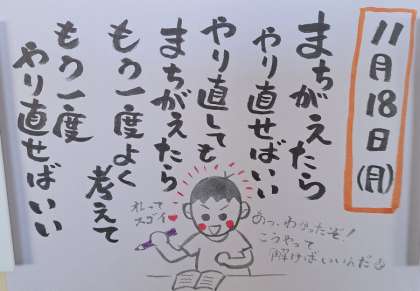 11月18日(月)
まちがえたら
やり直せばいい
やり直しても
まちがえたら
もう一度よく考えて
もう一度
やり直せばいい
オレって
スゴイ
あっ、わかったぞ!
こうやって
解けばいいんだな